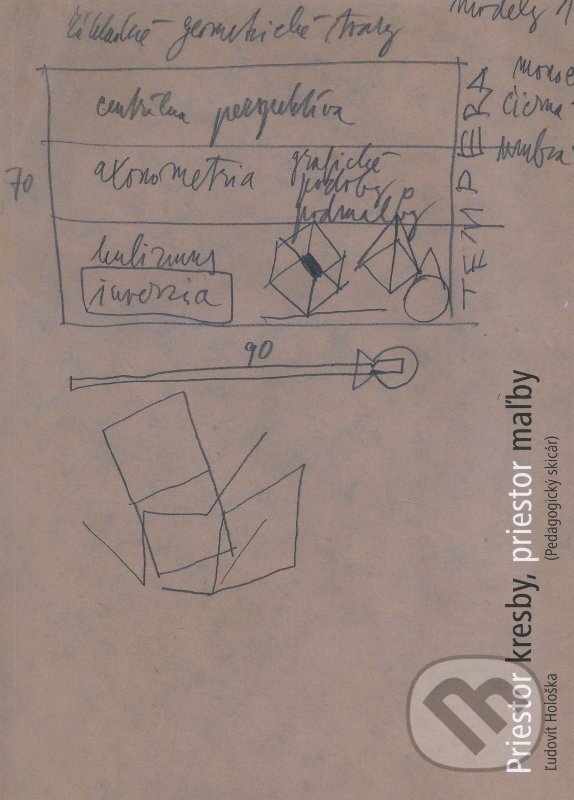 základné geometrické tvary
modely 1
centrálna perspektíva
čierna
70
axonometria
grafické
podoby
podmaľby
umbra
TEMPERA
kubizmus
inverzia
90
Priestor kresby, priestor maľby
(Pedagogický skicár)
Ľudovít Hološka